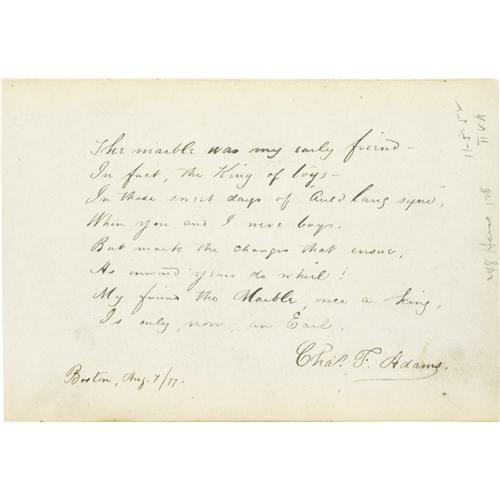 The marble was my early friend –
In fact, the King of toys –
In those sweet days of "Auld lang syne",
When you and I were boys.
But mark the changes that ensue,
As onward years do whirl!
My friend the Marble, once a king,
Is only, now, an Earl.
Chas. F. Adams.
Boston, Aug. 7/77.